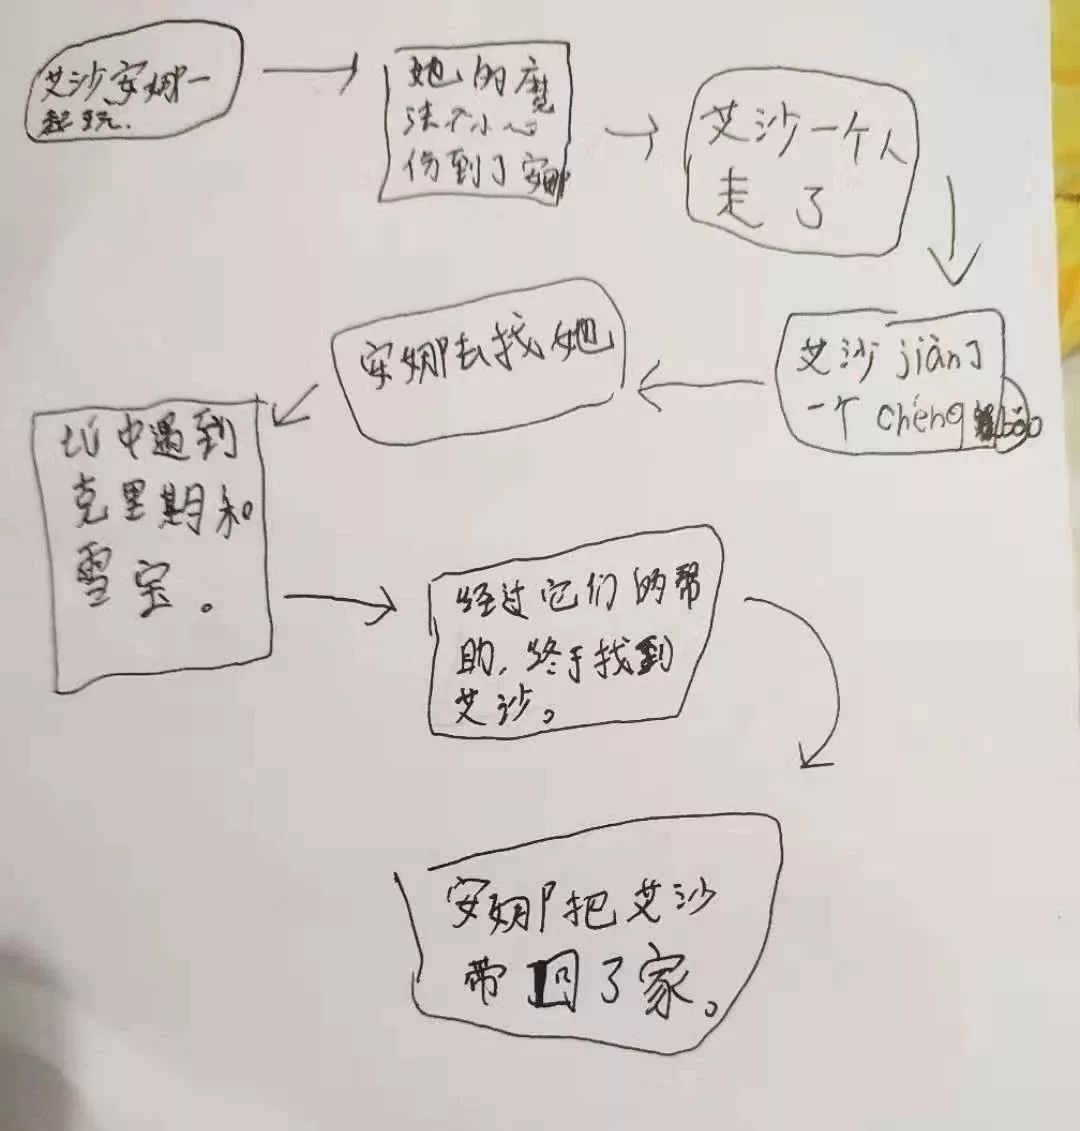 艾沙安娜一
起玩.
她的魔
法不小心
伤到了安娜
艾沙一个人
走了
艾沙jiàn了
一个chéngbǎo
安娜去找她
tú中遇到
克里期和
雪宝。
经过它们的帮
助,终于找到
艾沙。
安娜把艾沙
带回了家。